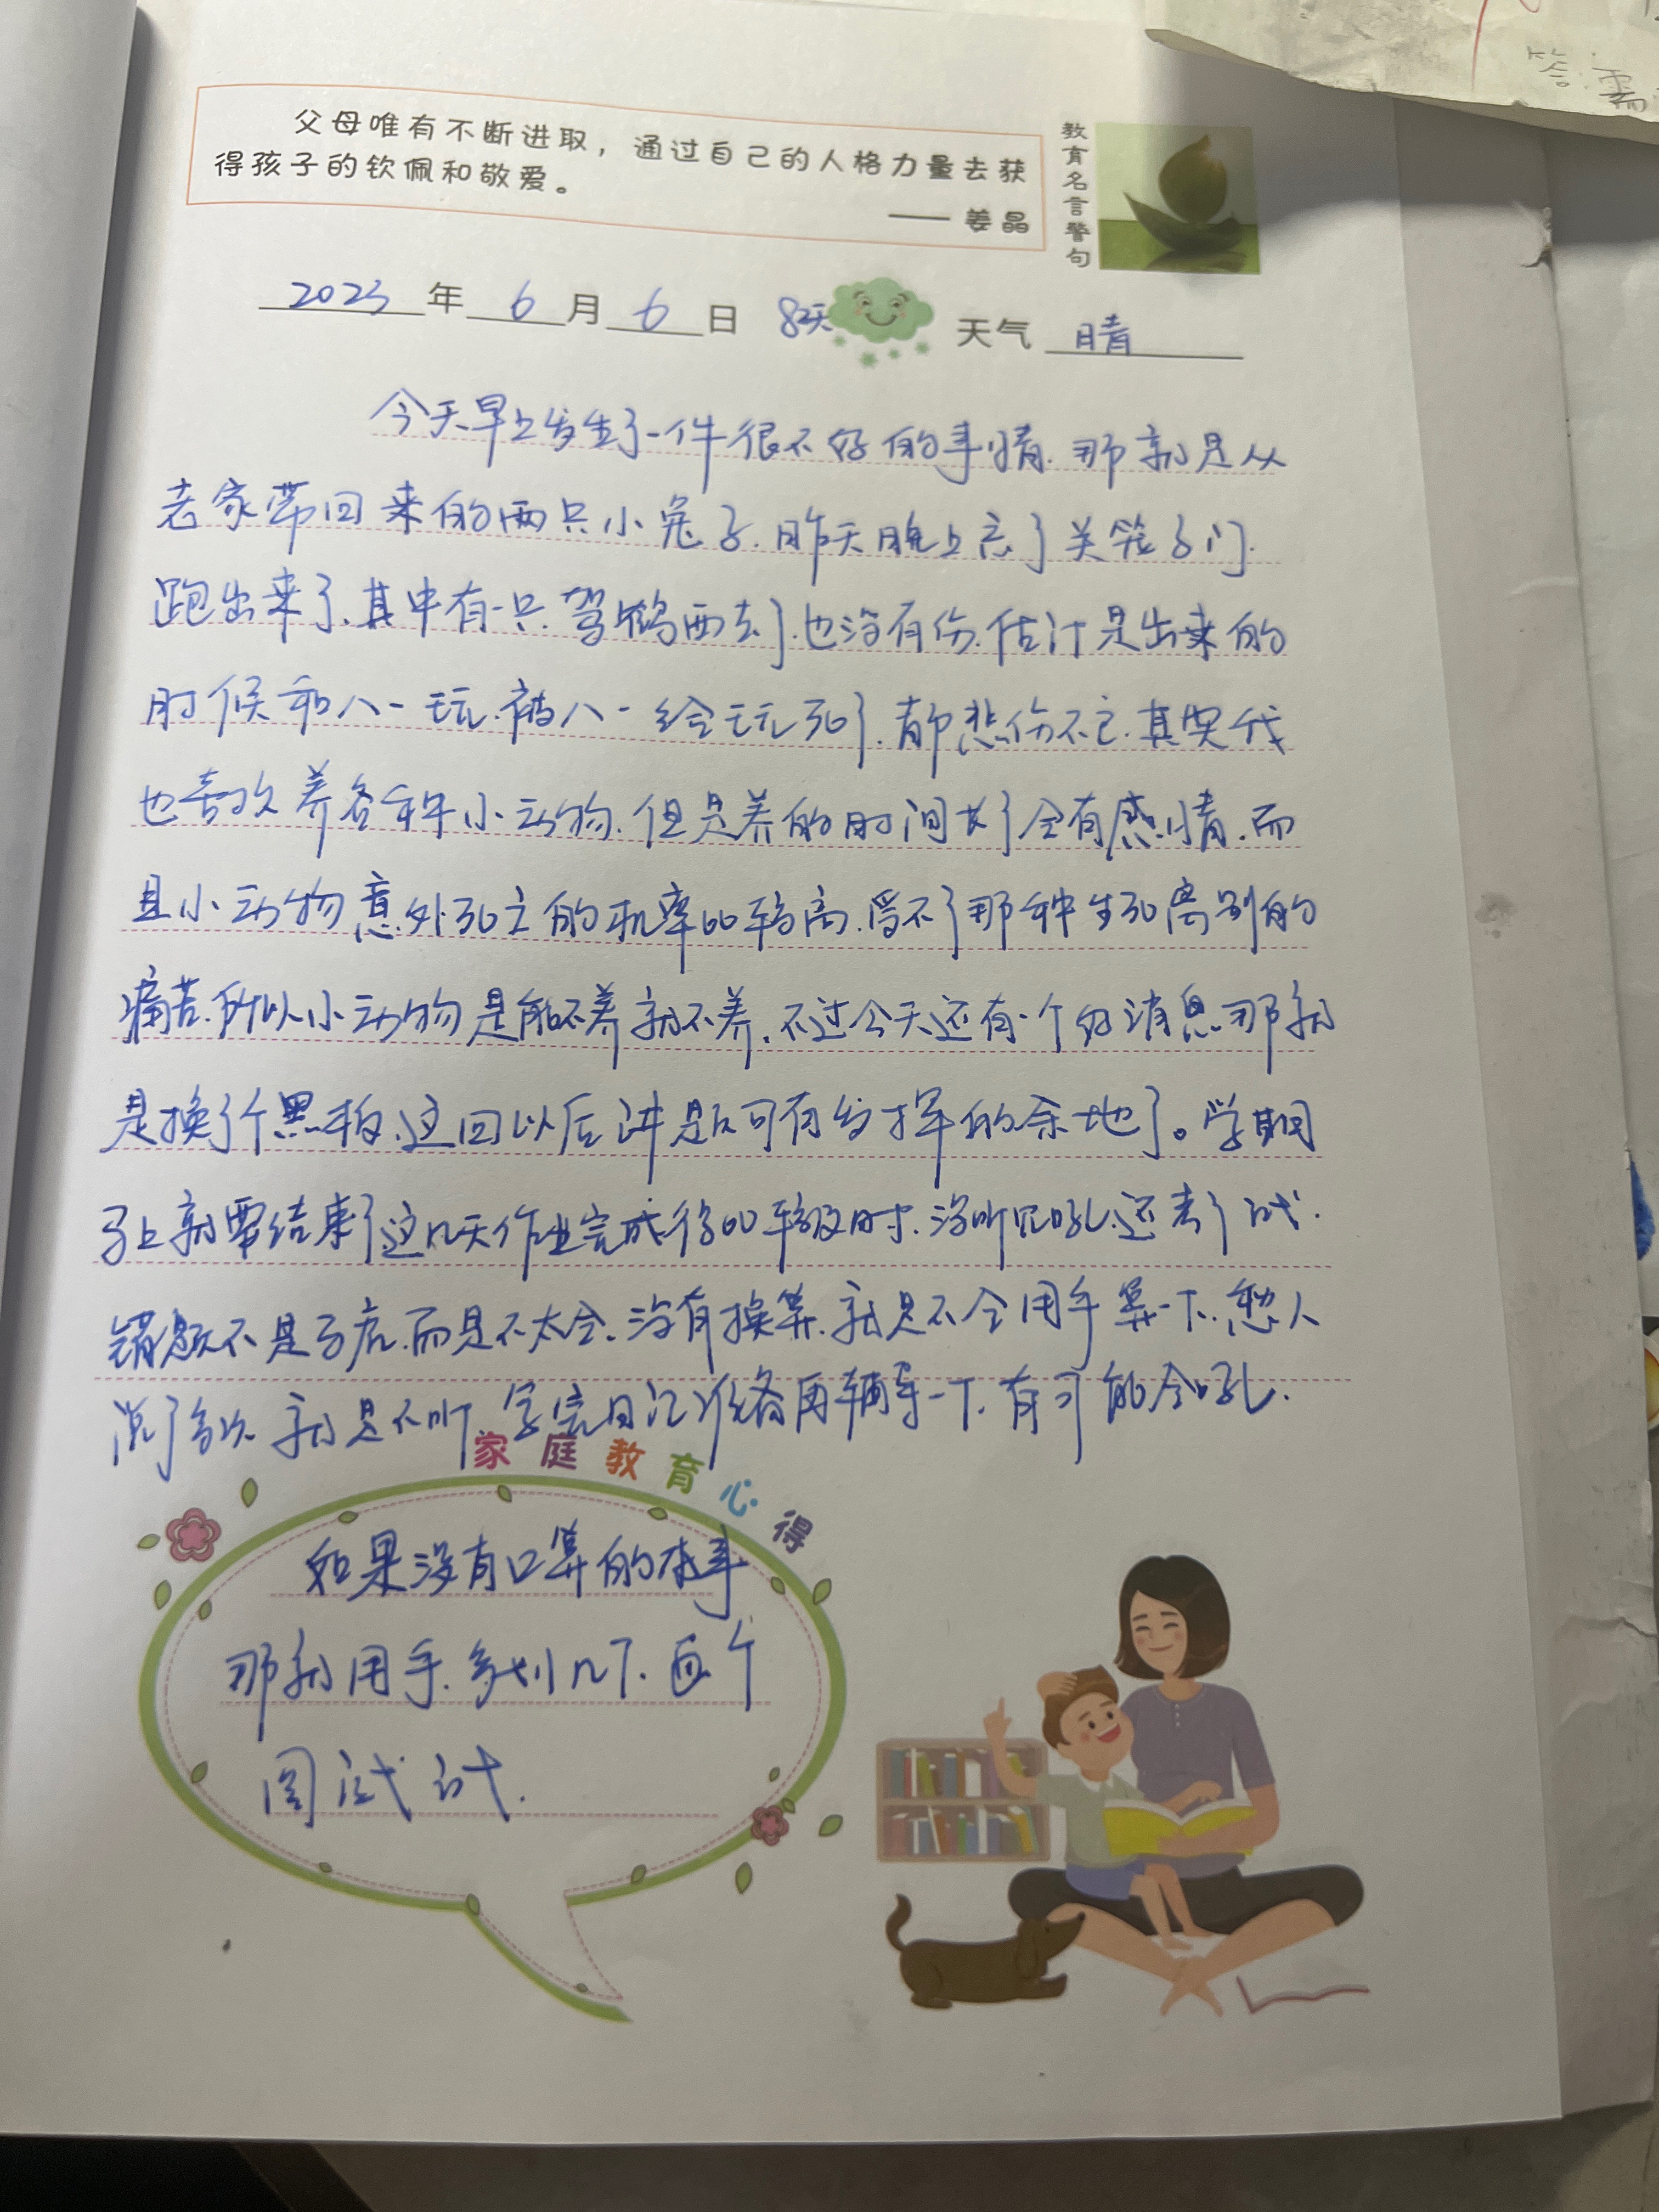 父母唯有不断进取，通过自己的人格力量去获
得孩子的钦佩和敬爱。
—— 姜晶
教育名言警句
答：需
2023年6月6日 82天 天气 晴
今天早上发生了一件很不好的事情.那就是从
老家带回来的两只小兔子.昨天晚上忘了关笼子门.
跑出来了.其中有一只.驾鹤西去了.也没有伤.估计是出来的
时候和八一玩.被八一给玩死了.都悲伤不已.其实我
也喜欢养各种小动物.但是养的时间长了会有感情.而
且小动物意外死亡的机率比较高.受不了那种生死离别的
痛苦.所以小动物是能不养就不养.不过今天还有一个好消息那就
是换了个黑板.这回以后讲题可有发挥的余地了。学期
马上就要结束了这几天作业完成得比较及时.没听见吼.还考了试.
错题不是马虎.而是不太会.没有换算.就是不会用手算一下.愁人
说了多次.就是不听.写完日记准备再辅导一下.有可能会吼.
家庭教育心得
如果没有口算的本事
那就用手.多划几下.画个
图试试.